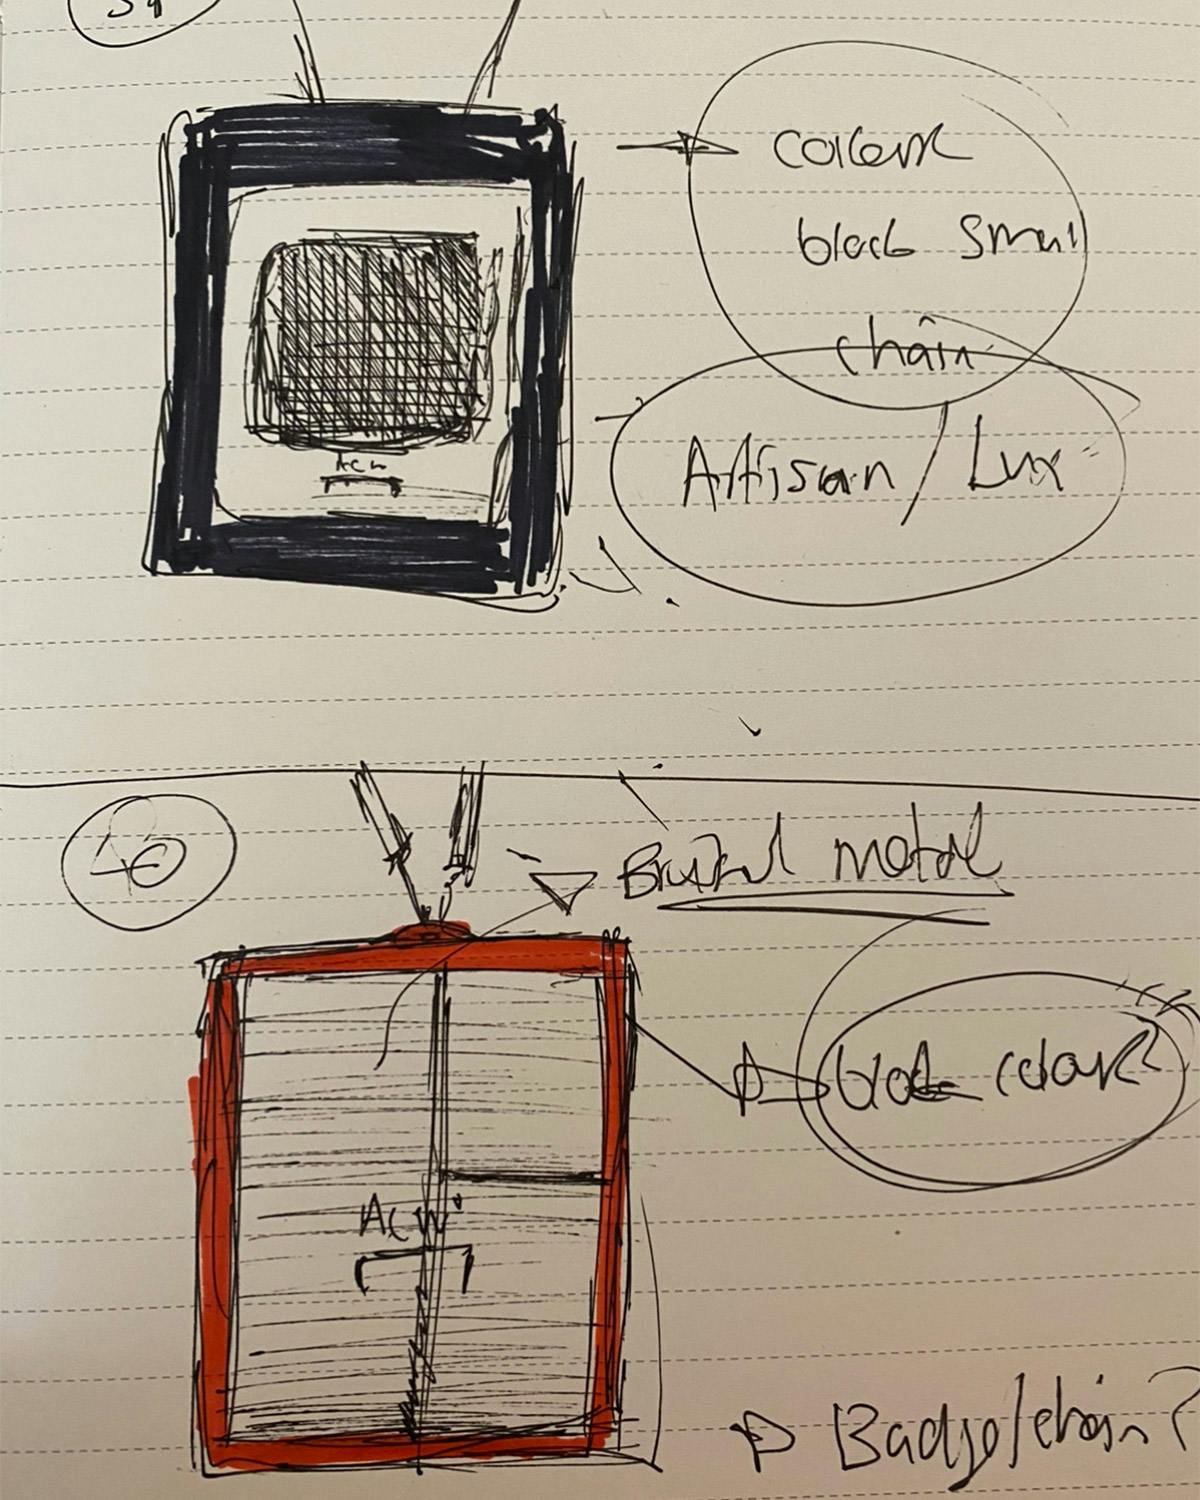 colour
black small
chain
Artisan / Lux
ACW
40
metal
black colour
ACW
Badge/chain?